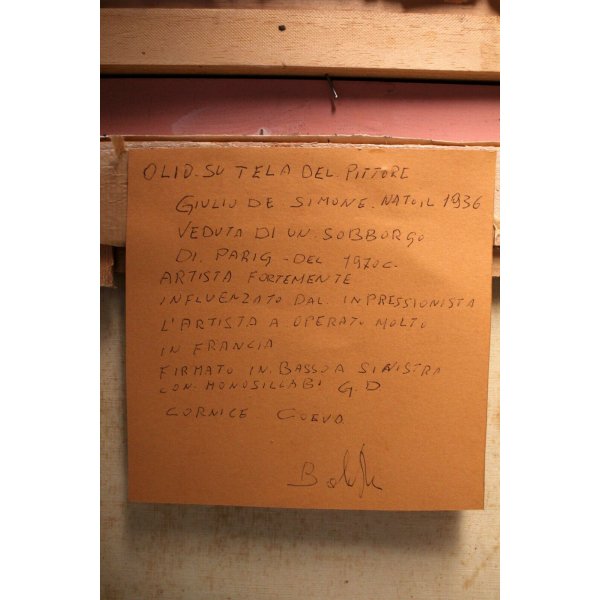 OLIO. SU TELA DEL. PITTORE
GIULIO DE. SIMONE. NATO IL 1936
VEDUTA DI UN. SOBBORGO
DI. PARIG - DEL 1970 C.
ARTISTA FORTEMENTE
INFLUENZATO DAL. INPRESSIONISTA
L'ARTISTA A OPERATO MOLTO
IN FRANCIA
FIRMATO IN. BASSO A SINISTRA
CON. MONOSILLABI G.D
CORNICE COEVA